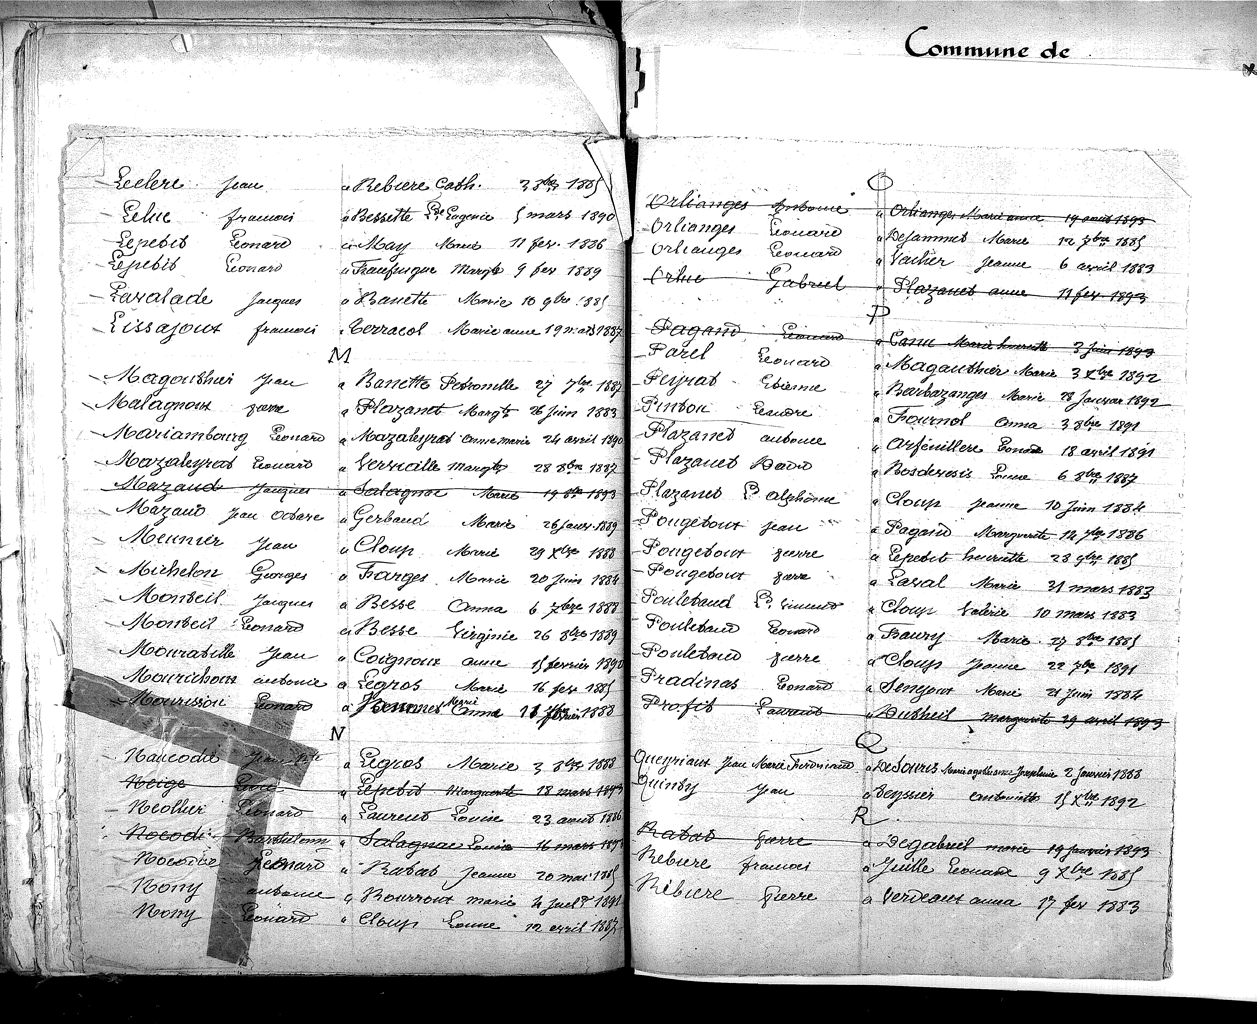 Commune de
Leclerc Jean a Rebiere Cath. 3 8bre 1885
Leluc francois a Bessette Eugenie 5 mars 1890
Lepetit Léonard a May Marie 11 fev. 1886
Lepetit Léonard a Margte 9 fev 1889
Lavalade Jacques a Banette Marie 10 9bre 1885
Lissajoux francois a Terracol Marie anne 19 mars 1887
M
Magauthier Jean a Banette Petronille 27 7bre 1887
Malagnoux pierre a Plazanet Margte 26 Juin 1883
Mariambourg Léonard a Mazaleyrat Anne Marie 24 avril 1890
Mazaleyrat Léonard a Vervialle Margte 28 8bre 1887
Mazaud Jacques a Salagnac Marie 19 8bre 1893
Mazaud Jean Octave a Gerbaud Marie 26 Janv. 1889
Meunier Jean a Cloup Marie 29 Xbre 1888
Michelon Georges a Farges Marie 20 Juin 1884
Monteil Jacques a Besse Anna 6 7bre 1888
Monteil Léonard a Besse Virginie 26 8bre 1889
Mouratille Jean a Coignoux anne 15 février 1890
Mourichoux antoine a Legros Marie 16 fev. 1885
Mourission Léonard a Marie Anna 1888
N
Naucodie Jean a Legros Marie 3 8bre 1888
Neige a Lepetit Marguerite 18 mars 1893
Léonard a Laurent Louise 23 aout 1886
Nocodie Barthélemy a Salagnac Louise 16 mars
Léonard a Rabat Jeanne 20 mai 1885
Nony antoine a Bourroux marie 4 Juelt 1891
Nony Léonard a Cloup Léonne 12 avril 1887
O
Orlianges Antoine a Orlianges Marie anne 19 aout 1893
Orlianges Léonard a Dejammet Marie 12 Xbre 1885
Orlianges Léonard a Vacher Jeanne 6 avril 1883
Orluc Gabriel a Plazanet anne 11 fev. 1893
P
Pagand Léonard a Marie henriette 3 Juin 1893
Parel Léonard a Magauthier Marie 3 Xbre 1892
Peyrat Etienne a Barbazanges Marie 28 Janvier 1892
Pinton a Fournol Anna 3 8bre 1891
Plazanet antoine a Arfeuillere 18 avril 1891
Plazanet a 6 8bre 1887
Plazanet Alphonse a Cloup Jeanne 10 Juin 1884
Pougetoux Jean a Pagand Marguerite 14 7bre 1886
Pougetoux pierre a Lepetit henriette 28 9bre 1885
Pougetoux pierre a Laval Marie 31 mars 1883
Pouletaud a Cloup Valérie 10 mars 1883
Pouletaud Léonard a Faury Marie 27 8bre 1885
Pouletaud pierre a Cloup Jeanne 22 7bre 1891
Pradinas Léonard a Senejoux Marie 21 Juin 1884
Profit Laurent a Dubheil marguerite 29 avril 1893
Q
Queyriaux Jean Marie Ferdinand a Desouris Marie Josephine 2 Janvier 1888
Quinty Jean a Deyssier antoinette 15 Xbre 1892
R
Rabat pierre a Degabriel marie 19 Janvier 1893
Rebiere francois a Juille Léonarde 9 Xbre 1885
Rebiere pierre a Verdeaux anna 17 fev 1883